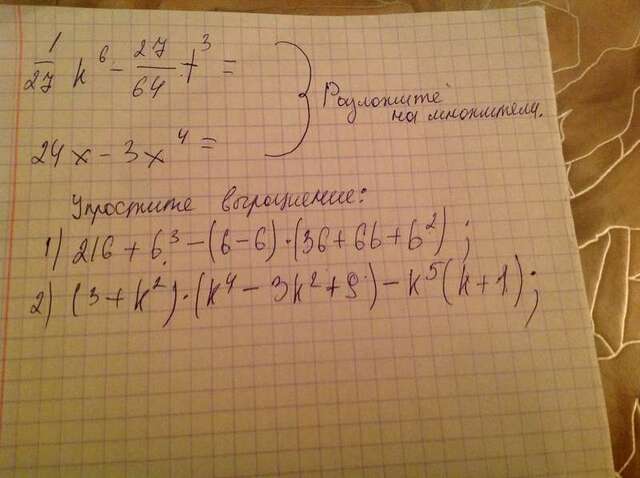 1/27 k⁶ - 27/64 t³ =
24x - 3x⁴ =
Разложите
на множители.
Упростите выражение:
1) 216 + b³ - (b - 6)·(36 + 6b + b²);
2) (3 + k²)·(k⁴ - 3k² + 9) - k⁵(k + 1);